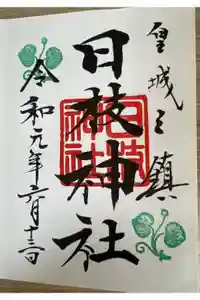 皇城之鎮
日枝神社
令和元年六月十三日
日枝神社